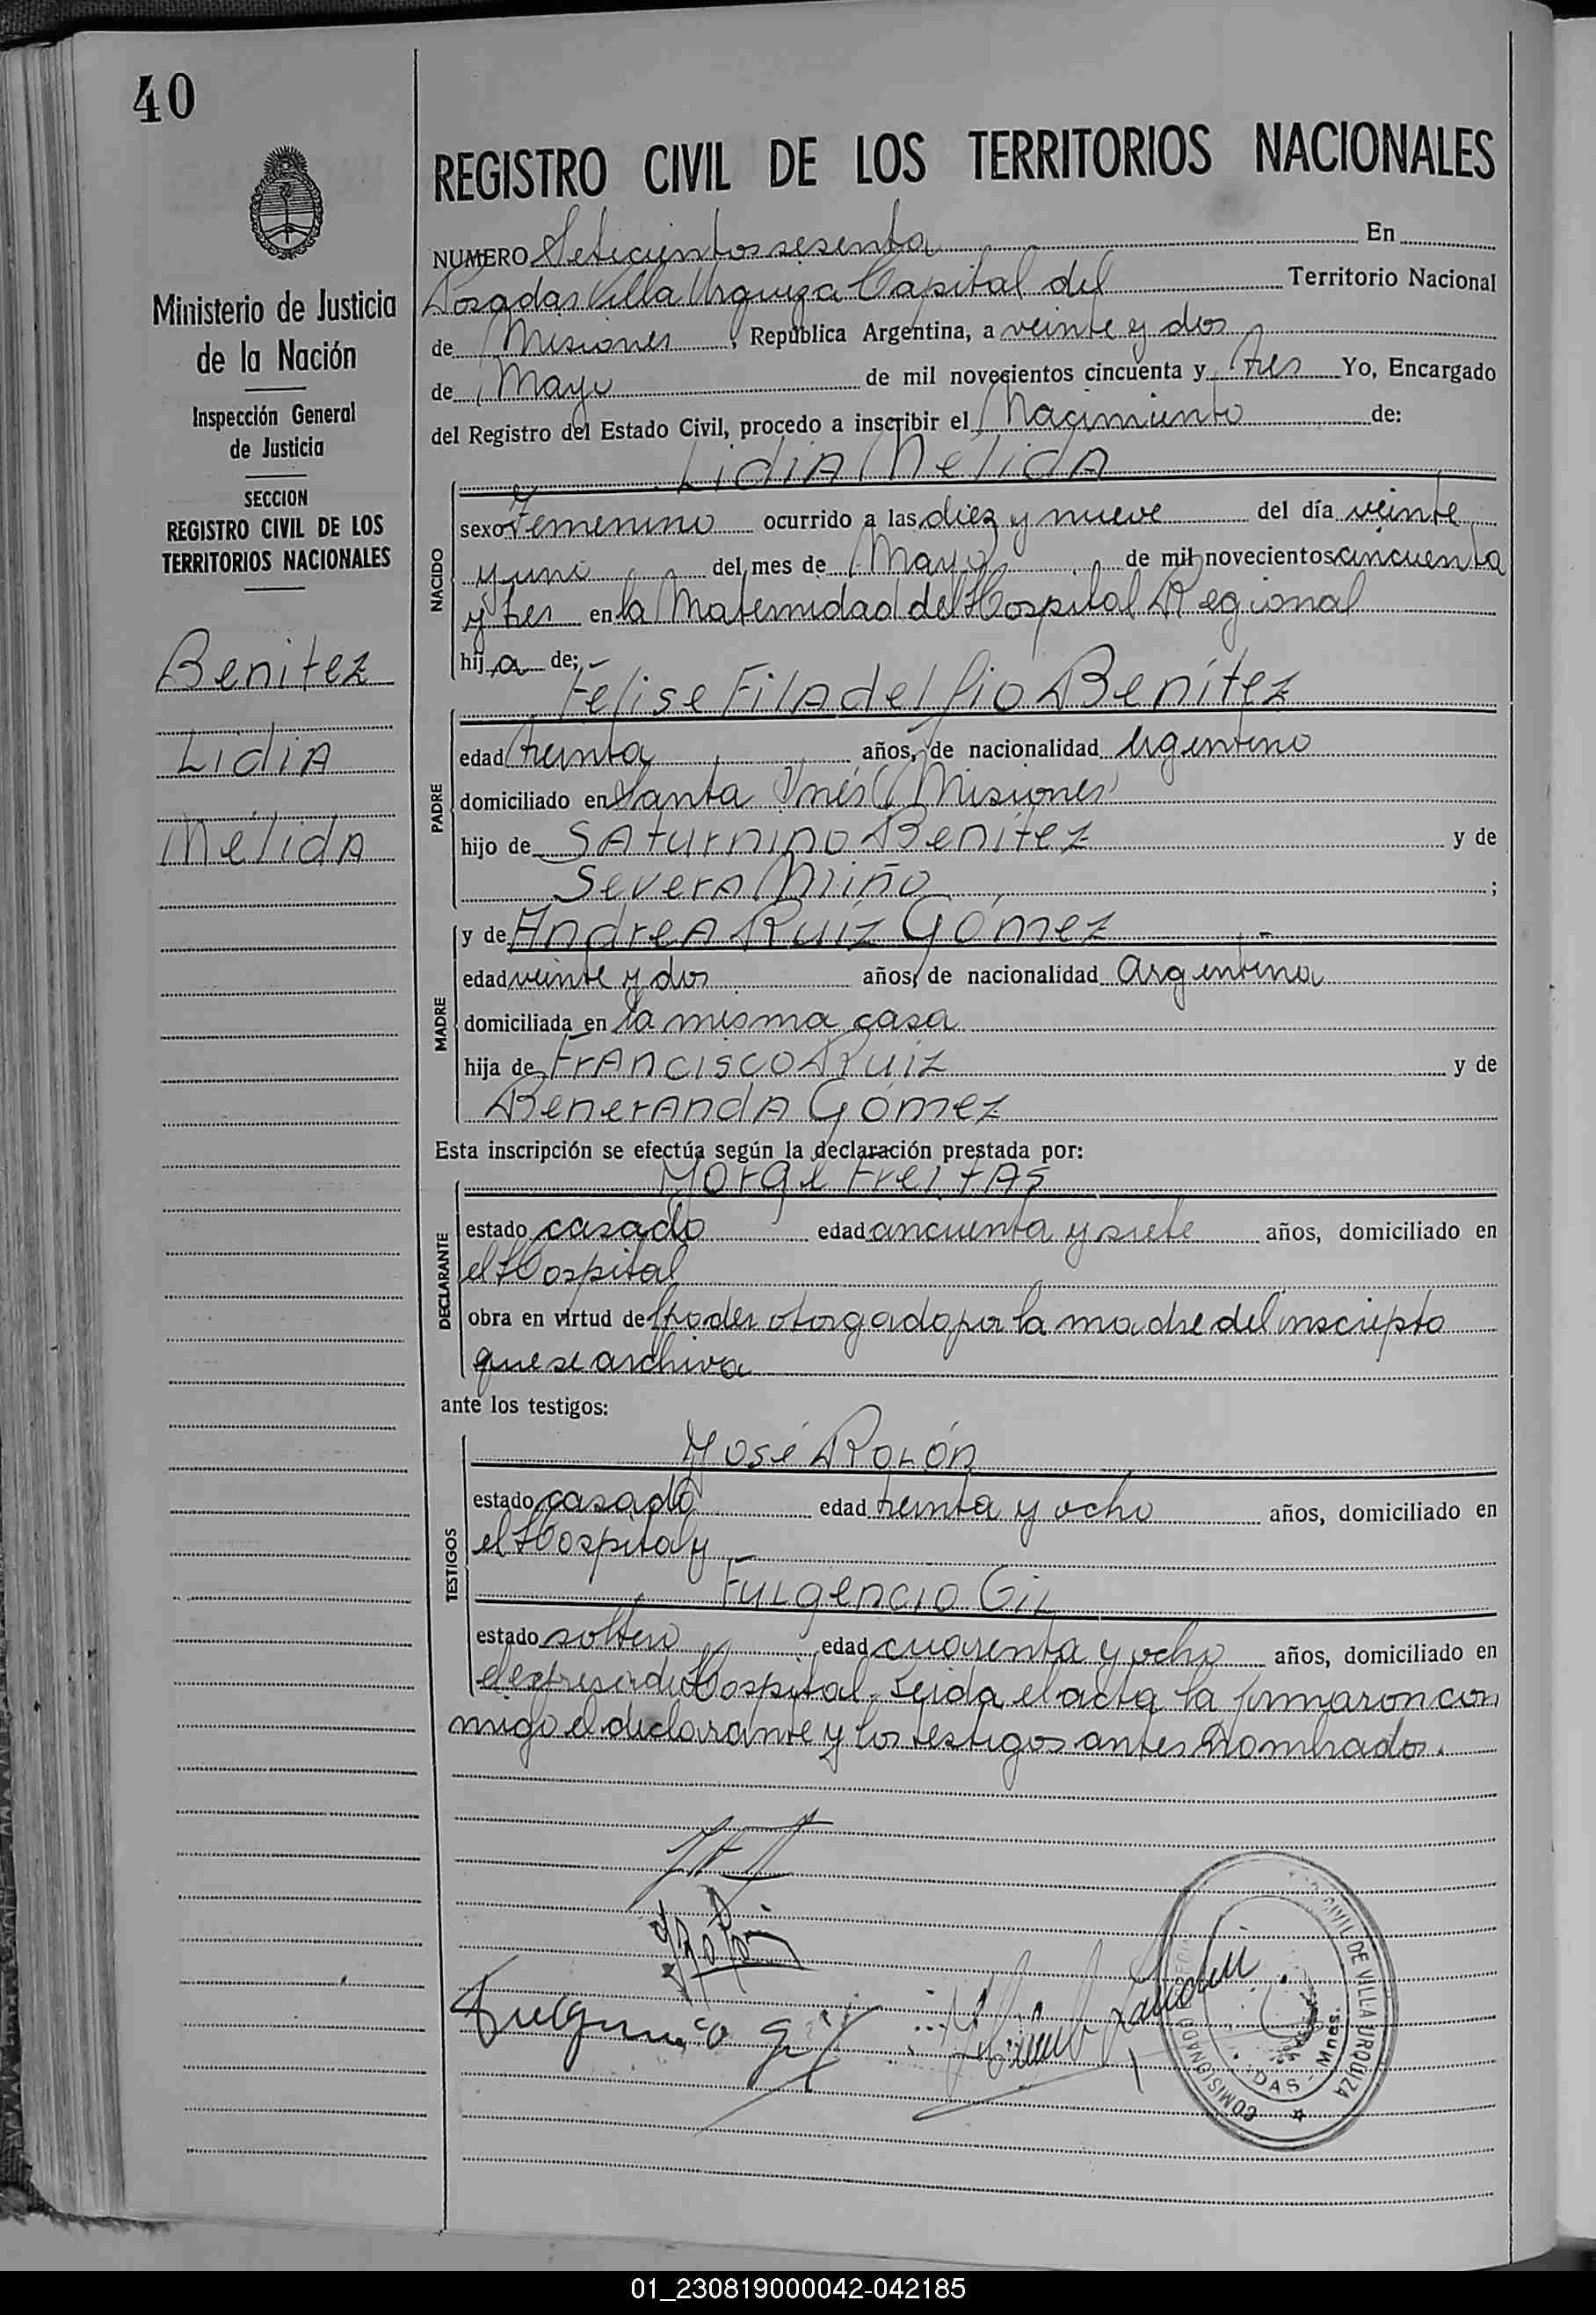 40
REGISTRO CIVIL DE LOS TERRITORIOS NACIONALES
Ministerio de Justicia
de la Nación
Inspección General
de Justicia
SECCION
REGISTRO CIVIL DE LOS
TERRITORIOS NACIONALES
Benitez
Lidia
Mélida
NUMERO Setecientos sesenta En
Posadas Villa Urquiza Capital del Territorio Nacional
de Misiones, República Argentina, a veinte y dos
de Mayo de mil novecientos cincuenta y tres Yo, Encargado
del Registro del Estado Civil, procedo a inscribir el Nacimiento de:
NACIDO
Lidia Melida
sexo Femenino ocurrido a las diez y nueve del día veinte
y uno del mes de Mayo de mil novecientos cincuenta
y tres en la Maternidad del Hospital Regional
hija de;
PADRE
Felise Filadelfio Benítez
edad treinta años, de nacionalidad Argentino
domiciliado en Santa Inés (Misiones)
hijo de Saturnino Benítez y de
Severa Miño ;
MADRE
y de Andrea Ruíz Gómez -
edad veinte y dos años, de nacionalidad Argentina
domiciliada en la misma casa
hija de Francisco Ruiz y de
Beneranda Gómez
Esta inscripción se efectúa según la declaración prestada por:
DECLARANTE
Jorge Freitas
estado casado edad cincuenta y siete años, domiciliado en
el Hospital
obra en virtud de Poder otorgado por la madre del inscripto
que se archiva
ante los testigos:
TESTIGOS
José Rolón
estado casado edad treinta y ocho años, domiciliado en
el Hospital y
Fulgencio Gil
estado soltero edad cuarenta y ocho años, domiciliado en
el expresado Hospital. Leida el acta la firmaron con
migo el declarante y los testigos antes nombrados.
Fulgencio Gil
CIVIL DE VILLA URQUIZA
COMISIONADO
DAS - Mnes.
01_230819000042-042185